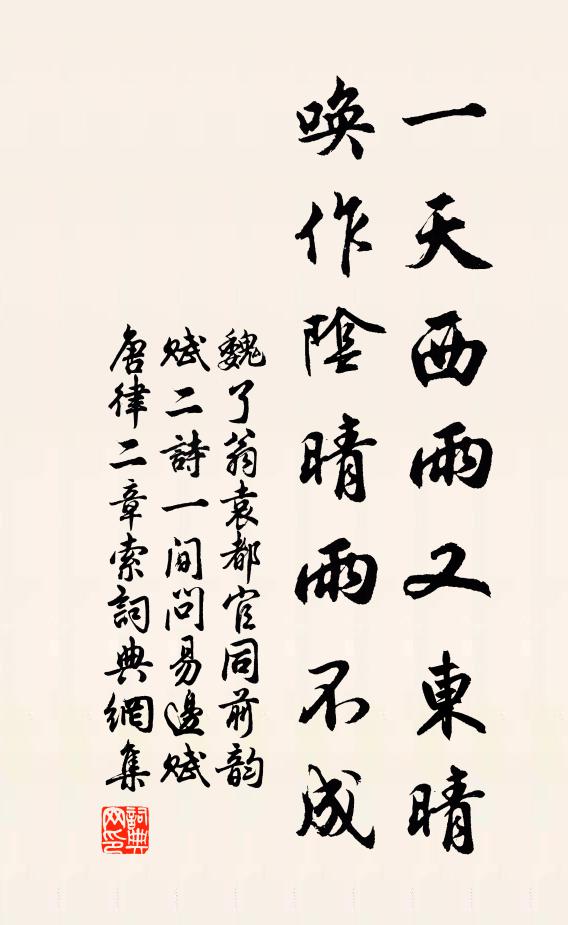 一天西雨又東晴
喚作陰晴雨不成
魏了翁袁都官同前韵
赋二詩一间问易邊赋
唐律二章索詞典網集
詞典網印